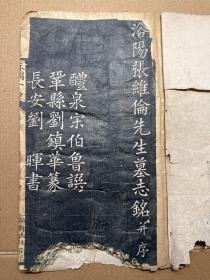 洛陽張維倫先生墓志銘并序
醴泉宋伯魯譔
鞏縣劉鎮華篆
長安劉暉書